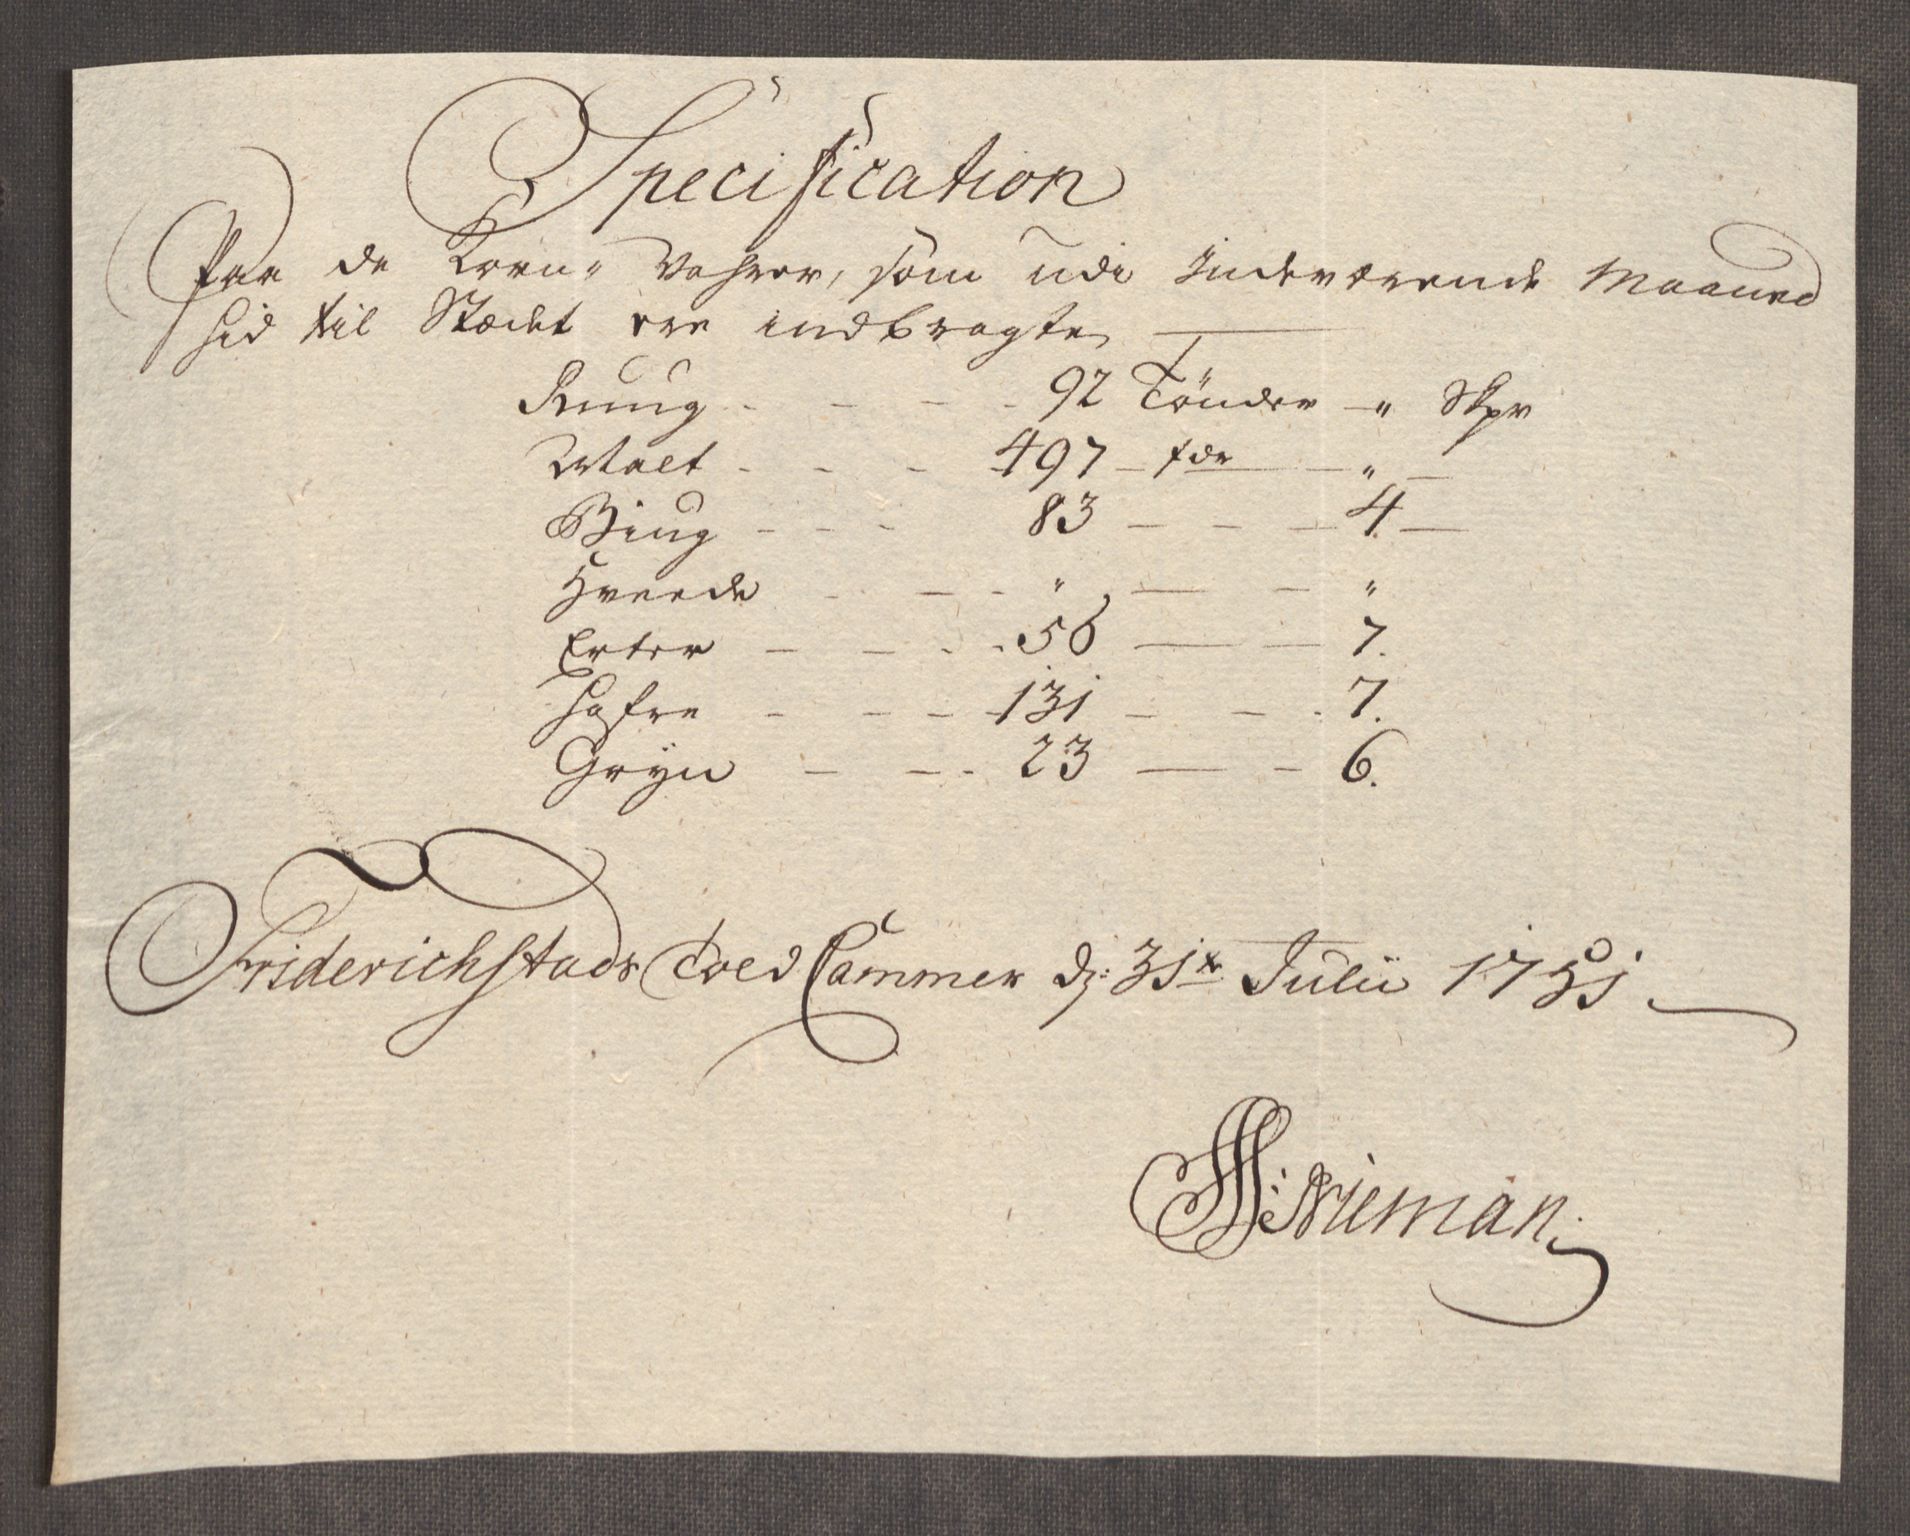 Specification
Paa de Korn- Vahrer, som udi Indeværende Maaned
hid til Stædet ere indbragte
Ruug - - - - 92 Tönder - " Skpr
Malt - - - 497 - tdr - " -
Biug - - - 83 - - - 4 -
Hveede - - - " - - "
Erter - - - - 56 - - 7.
Hafre - - - 131 - - - 7.
Gryn - - - 23 - - 6.
Friderichstads Told Cammer d: 31te Julii 1751
Nieman.